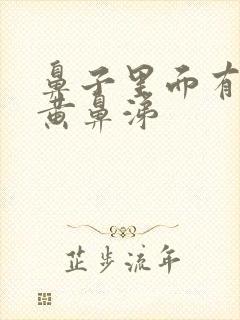 鼻子里而有
黄鼻涕
芷步流年